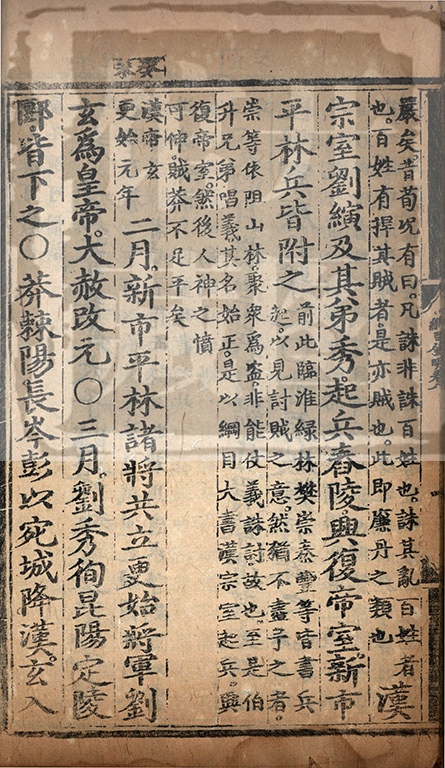 嚴矣。昔荀況有曰。凡誅非誅百姓也。誅其亂百姓者
也。百姓有捍其賊者。是亦賊也。此即廉丹之類也
漢
宗室劉縯及其弟秀。起兵舂陵。興復帝室。新市
平林兵皆附之
前此臨淮綠林樊崇秦豐等皆書兵
起。以見討賊之意。然猶不盡予之者。
崇等依阻山林。聚衆爲盜。非能仗義誅討故也。至是伯
升兄弟唱義。其名始正。是以綱目大書漢宗室起兵。興
復帝室。然後人神之憤
可伸。賊莽不足平矣
漢帝玄
更始元年
二月。新市平林諸將共立更始將軍劉
玄爲皇帝。大赦改元〇三月。劉秀徇昆陽定陵
郾。皆下之〇莽棘陽長岑彭以宛城降漢。玄入